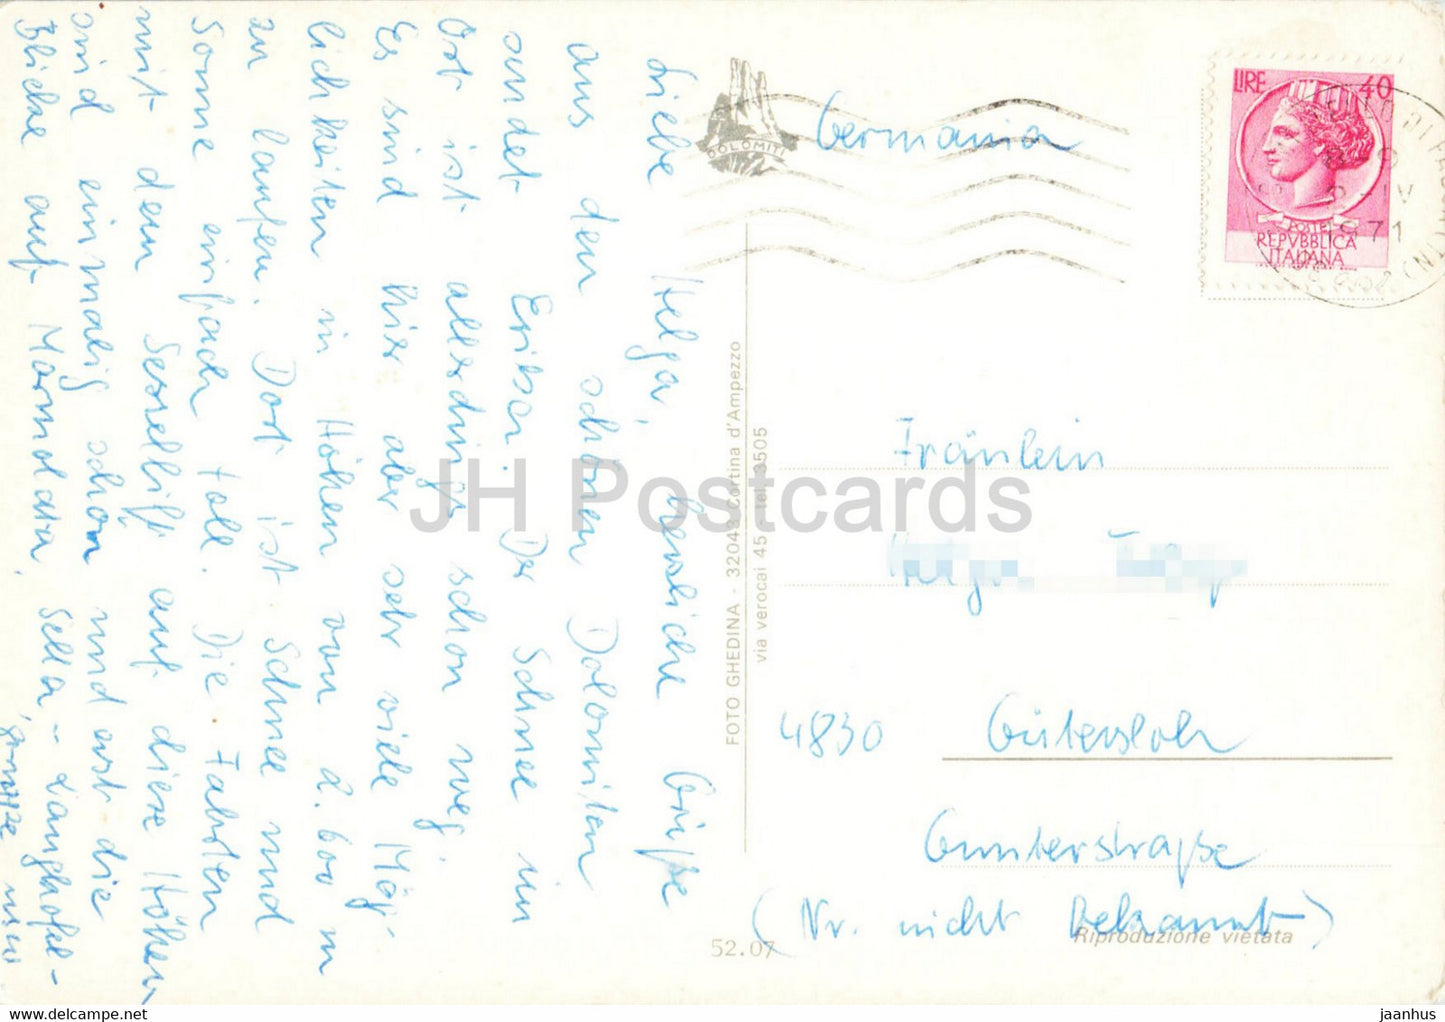 Liebe Helga, herzliche Grüße
aus den schönen Dolomiten
sendet Erika. Der Schnee im
Ort ist allerdings schon weg.
Es sind hier aber sehr viele Mög-
lichkeiten in Höhen von 2.600 m
zu laufen. Dort ist Schnee und
Sonne einfach toll. Die Fahrten
mit dem Sessellift auf diese Höhen
sind einmalig schön und erst die
Blicke auf Marmolata, Sella - Langkofel-
gruppe usw.
DOLOMITI
Germania
LIRE 40
POSTE
REPVBBLICA
ITALIANA
71
FOTO GHEDINA - 32043 Cortina d'Ampezzo
via verocai 45 - tel. 3505
Fräulein
Helga
4830 Gütersloh
Gunterstraße
(Nr. nicht bekannt)
52.07
Riproduzione vietata
JH Postcards
jaanhus
www.hipmarket.com